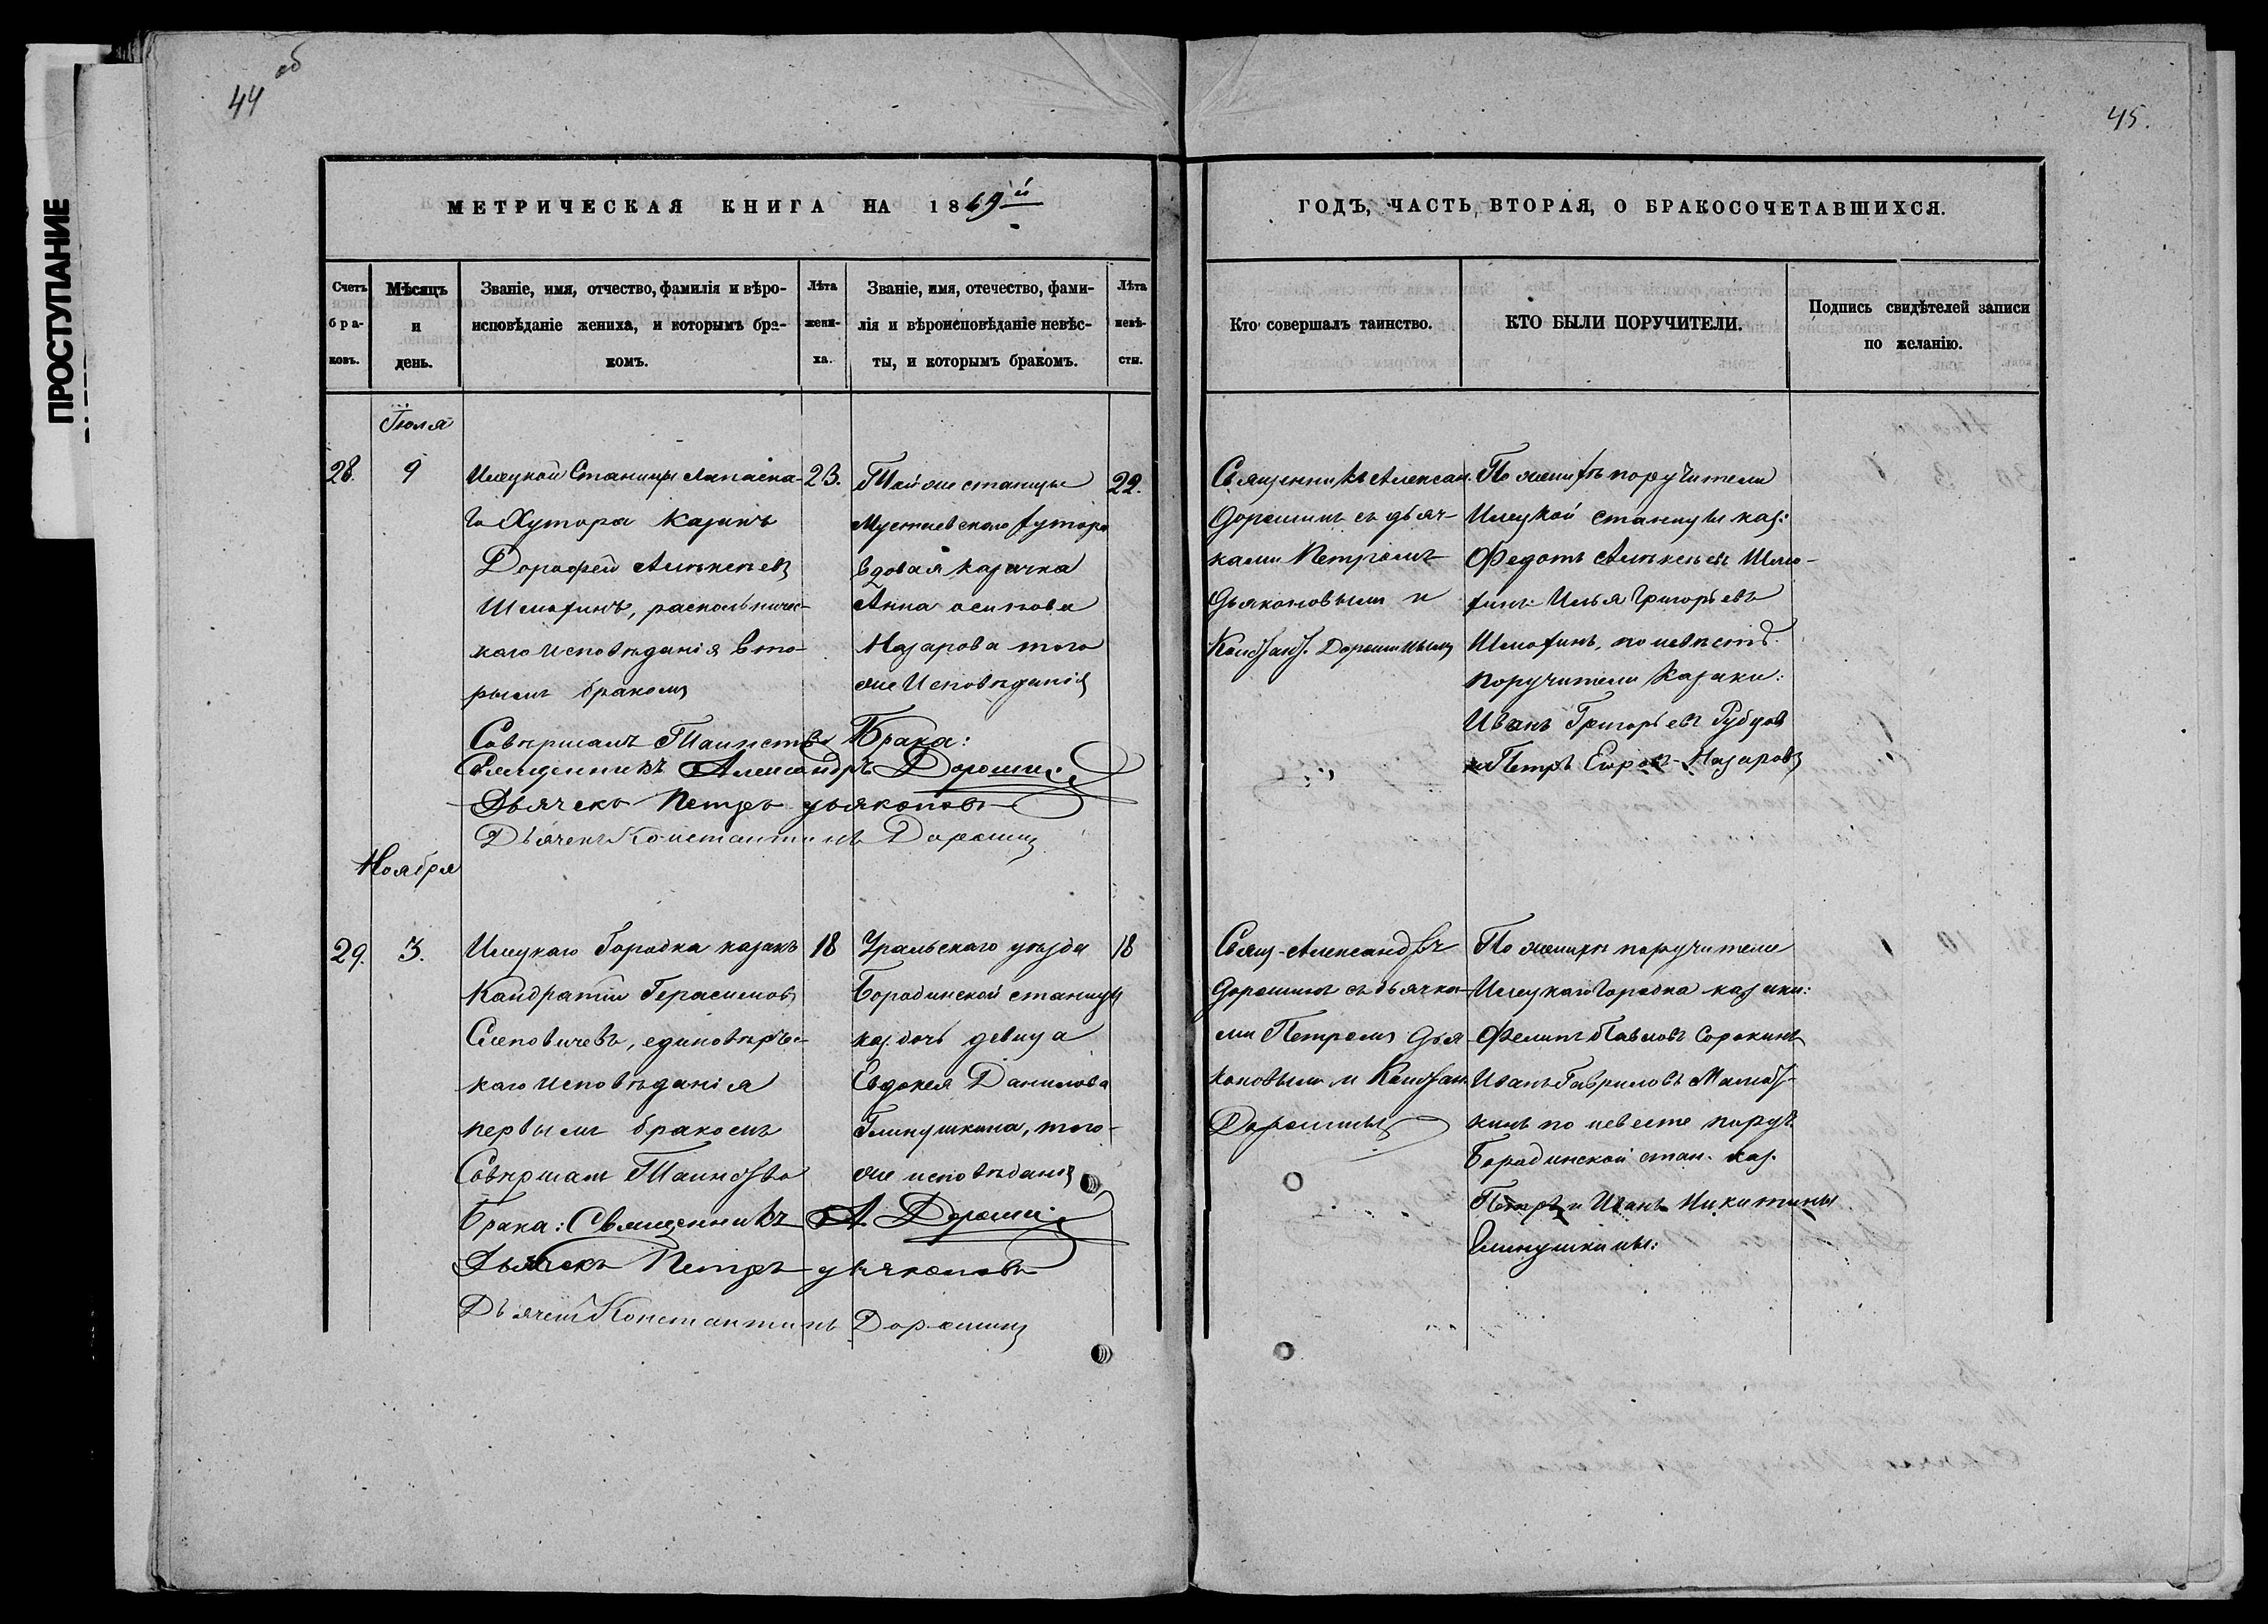 ПРОСТУПАНИЕ
44 об
МЕТРИЧЕСКАЯ КНИГА НА 1869й
Счетъ браковъ.
Мѣсяцъ и день.
Званіе, имя, отчество, фамилія и вѣро-
исповѣданіе жениха, и которымъ бра-
комъ.
Лѣта жениха.
Званіе, имя, отечество, фами-
лія и вѣроисповѣданіе невѣс-
ты, и которымъ бракомъ.
Лѣта невѣсты.
Іюля
28.
9
Илецкой Станицы
го Хутора Казакъ
Дорофей Алексѣевъ
раскольничес-
каго исповѣданія вто-
рымъ бракомъ
23.
Той же станицы
Мустаевского хутора
вдовая казачка
Анна осипова
Назарова того
же исповѣданія
22.
Совершалъ Таинство Брака:
Священникъ Александръ Дорошинъ
Дьячекъ Петръ Дьяконовъ
Дьячекъ Константинъ Дорошинъ
Ноября
29.
3.
Илецкаго Городка казакъ
Кандратій Герасимовъ
единовѣрчес-
каго исповѣданія
первымъ бракомъ
18
Уральскаго уѣзда
Бородинской станицы
каз. дочь девица
Евдокея Данилова
Глинушкина, того-
же исповѣданія
18
Совершалъ Таинство
Брака: Священникъ А Дорошинъ
Дьячекъ Петръ Дьяконовъ
Дьячекъ Константинъ Дорошинъ
45.
ГОДЪ, ЧАСТЬ ВТОРАЯ, О БРАКОСОЧЕТАВШИХСЯ.
Кто совершалъ таинство.
КТО БЫЛИ ПОРУЧИТЕЛИ.
Подпись свидѣтелей записи
по желанію.
Священникъ Алексан.
Дорошинъ съ дьяч-
ками Петромъ
Дьяконовымъ и
Констант. Дорошинымъ
По женихѣ поручители
Илецкой станицы каз:
Федотъ Алексѣевъ
Илья Григорьевъ
по невѣстѣ
поручители Казаки:
Иванъ Григорьевъ Рубцовъ
и Петръ Назаровъ
Свящ. Александръ
Дорошинъ съ дьячка-
ми Петромъ Дья
коновымъ и Констан
Дорошинымъ
По женихѣ поручители
Илецкаго Городка казаки:
Филипъ Павловъ Сорокинъ
Иванъ Гавриловъ
кинъ по невесте поруч
Бородинской стан. каз.
Петръ и Иванъ Никитины
Глинушкины: